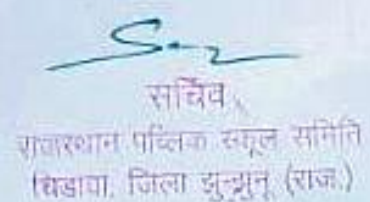 सचिव
राजस्थान पब्लिक स्कूल समिति
चिडावा, जिला झुन्झुनू (राज.)